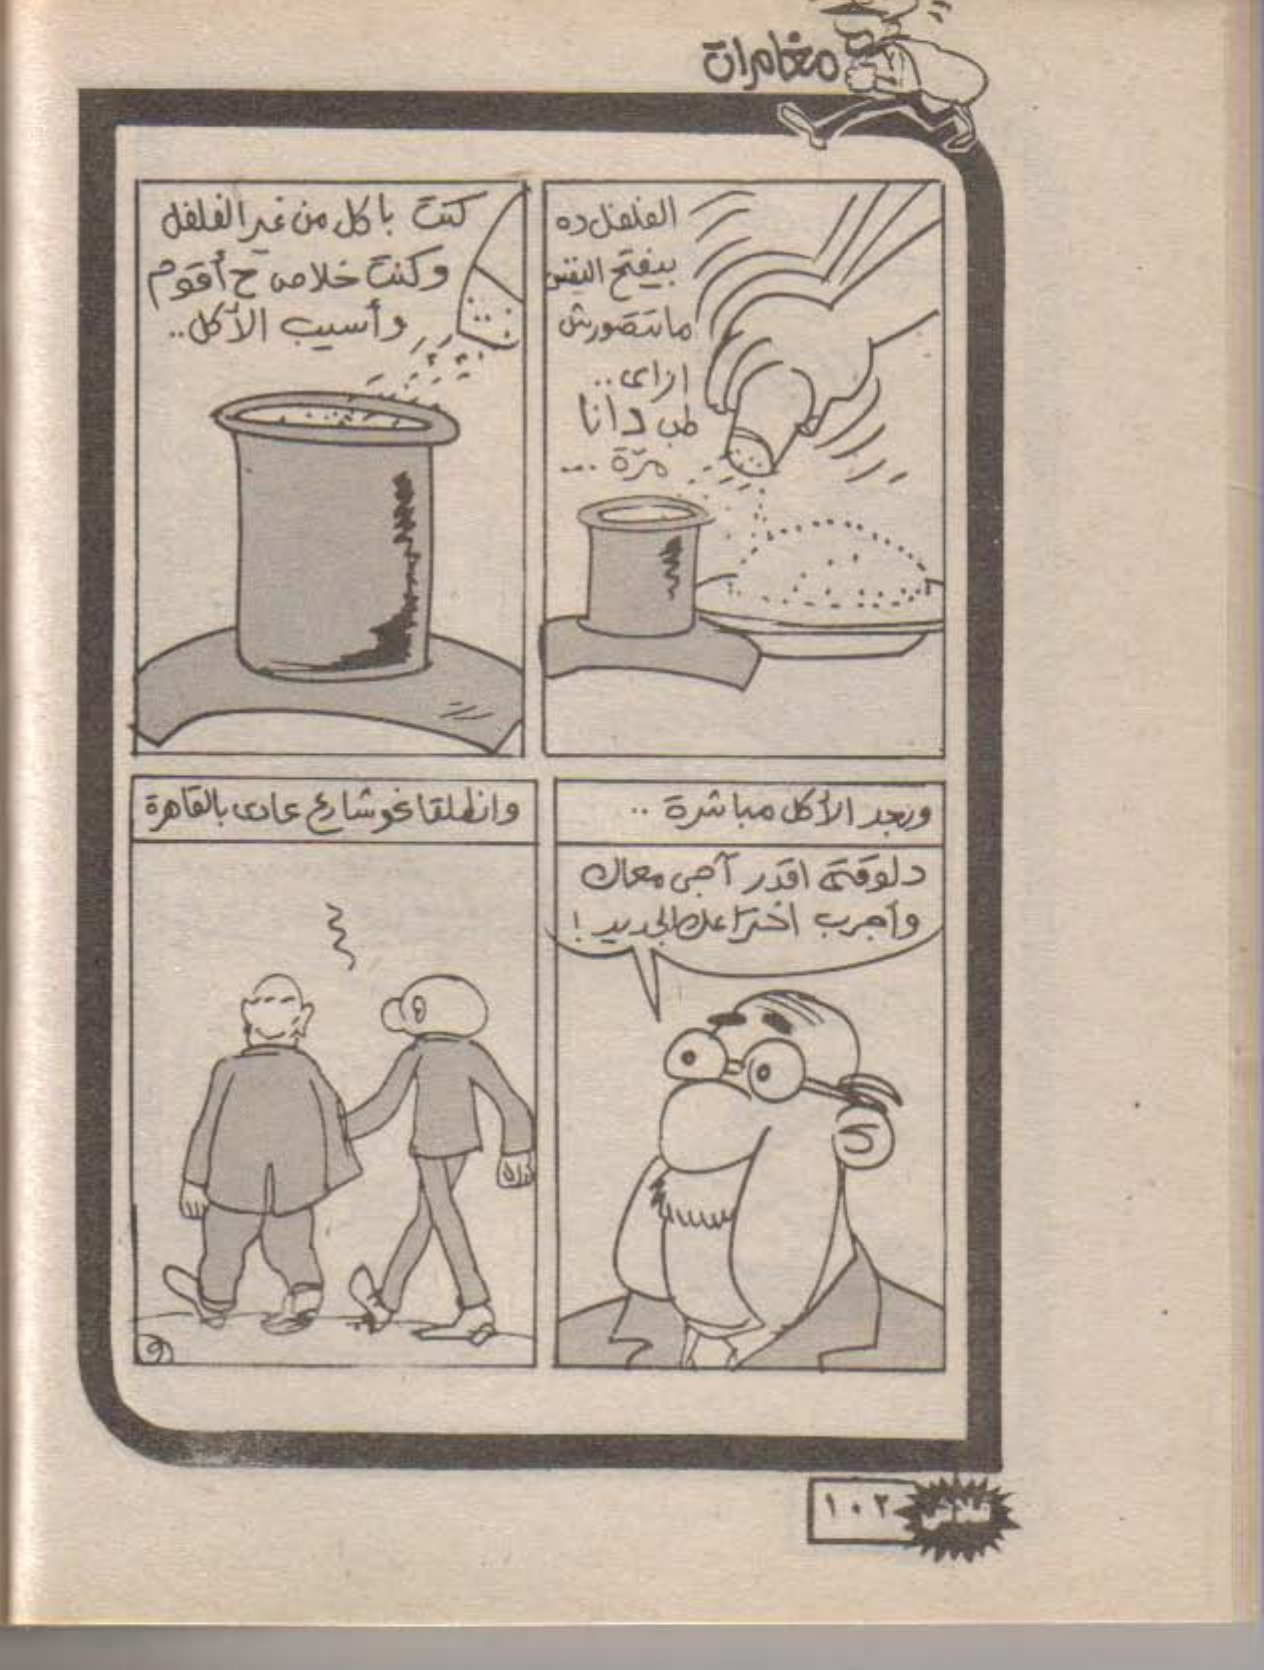 مغامرات
الفلفل ده
بيفتح النفس
ماتتصورش
ازاى..
طب دانا
مرّة ...
كنت باكل من غير الفلفل
وكنت خلاص ح أقوم
وأسيب الأكل..
وبعد الأكل مباشرة ..
دلوقتى اقدر آجى معاك
وأجرب اختراعك الجديد !
وانطلقا نحو شارع عادى بالقاهرة
١٠٢